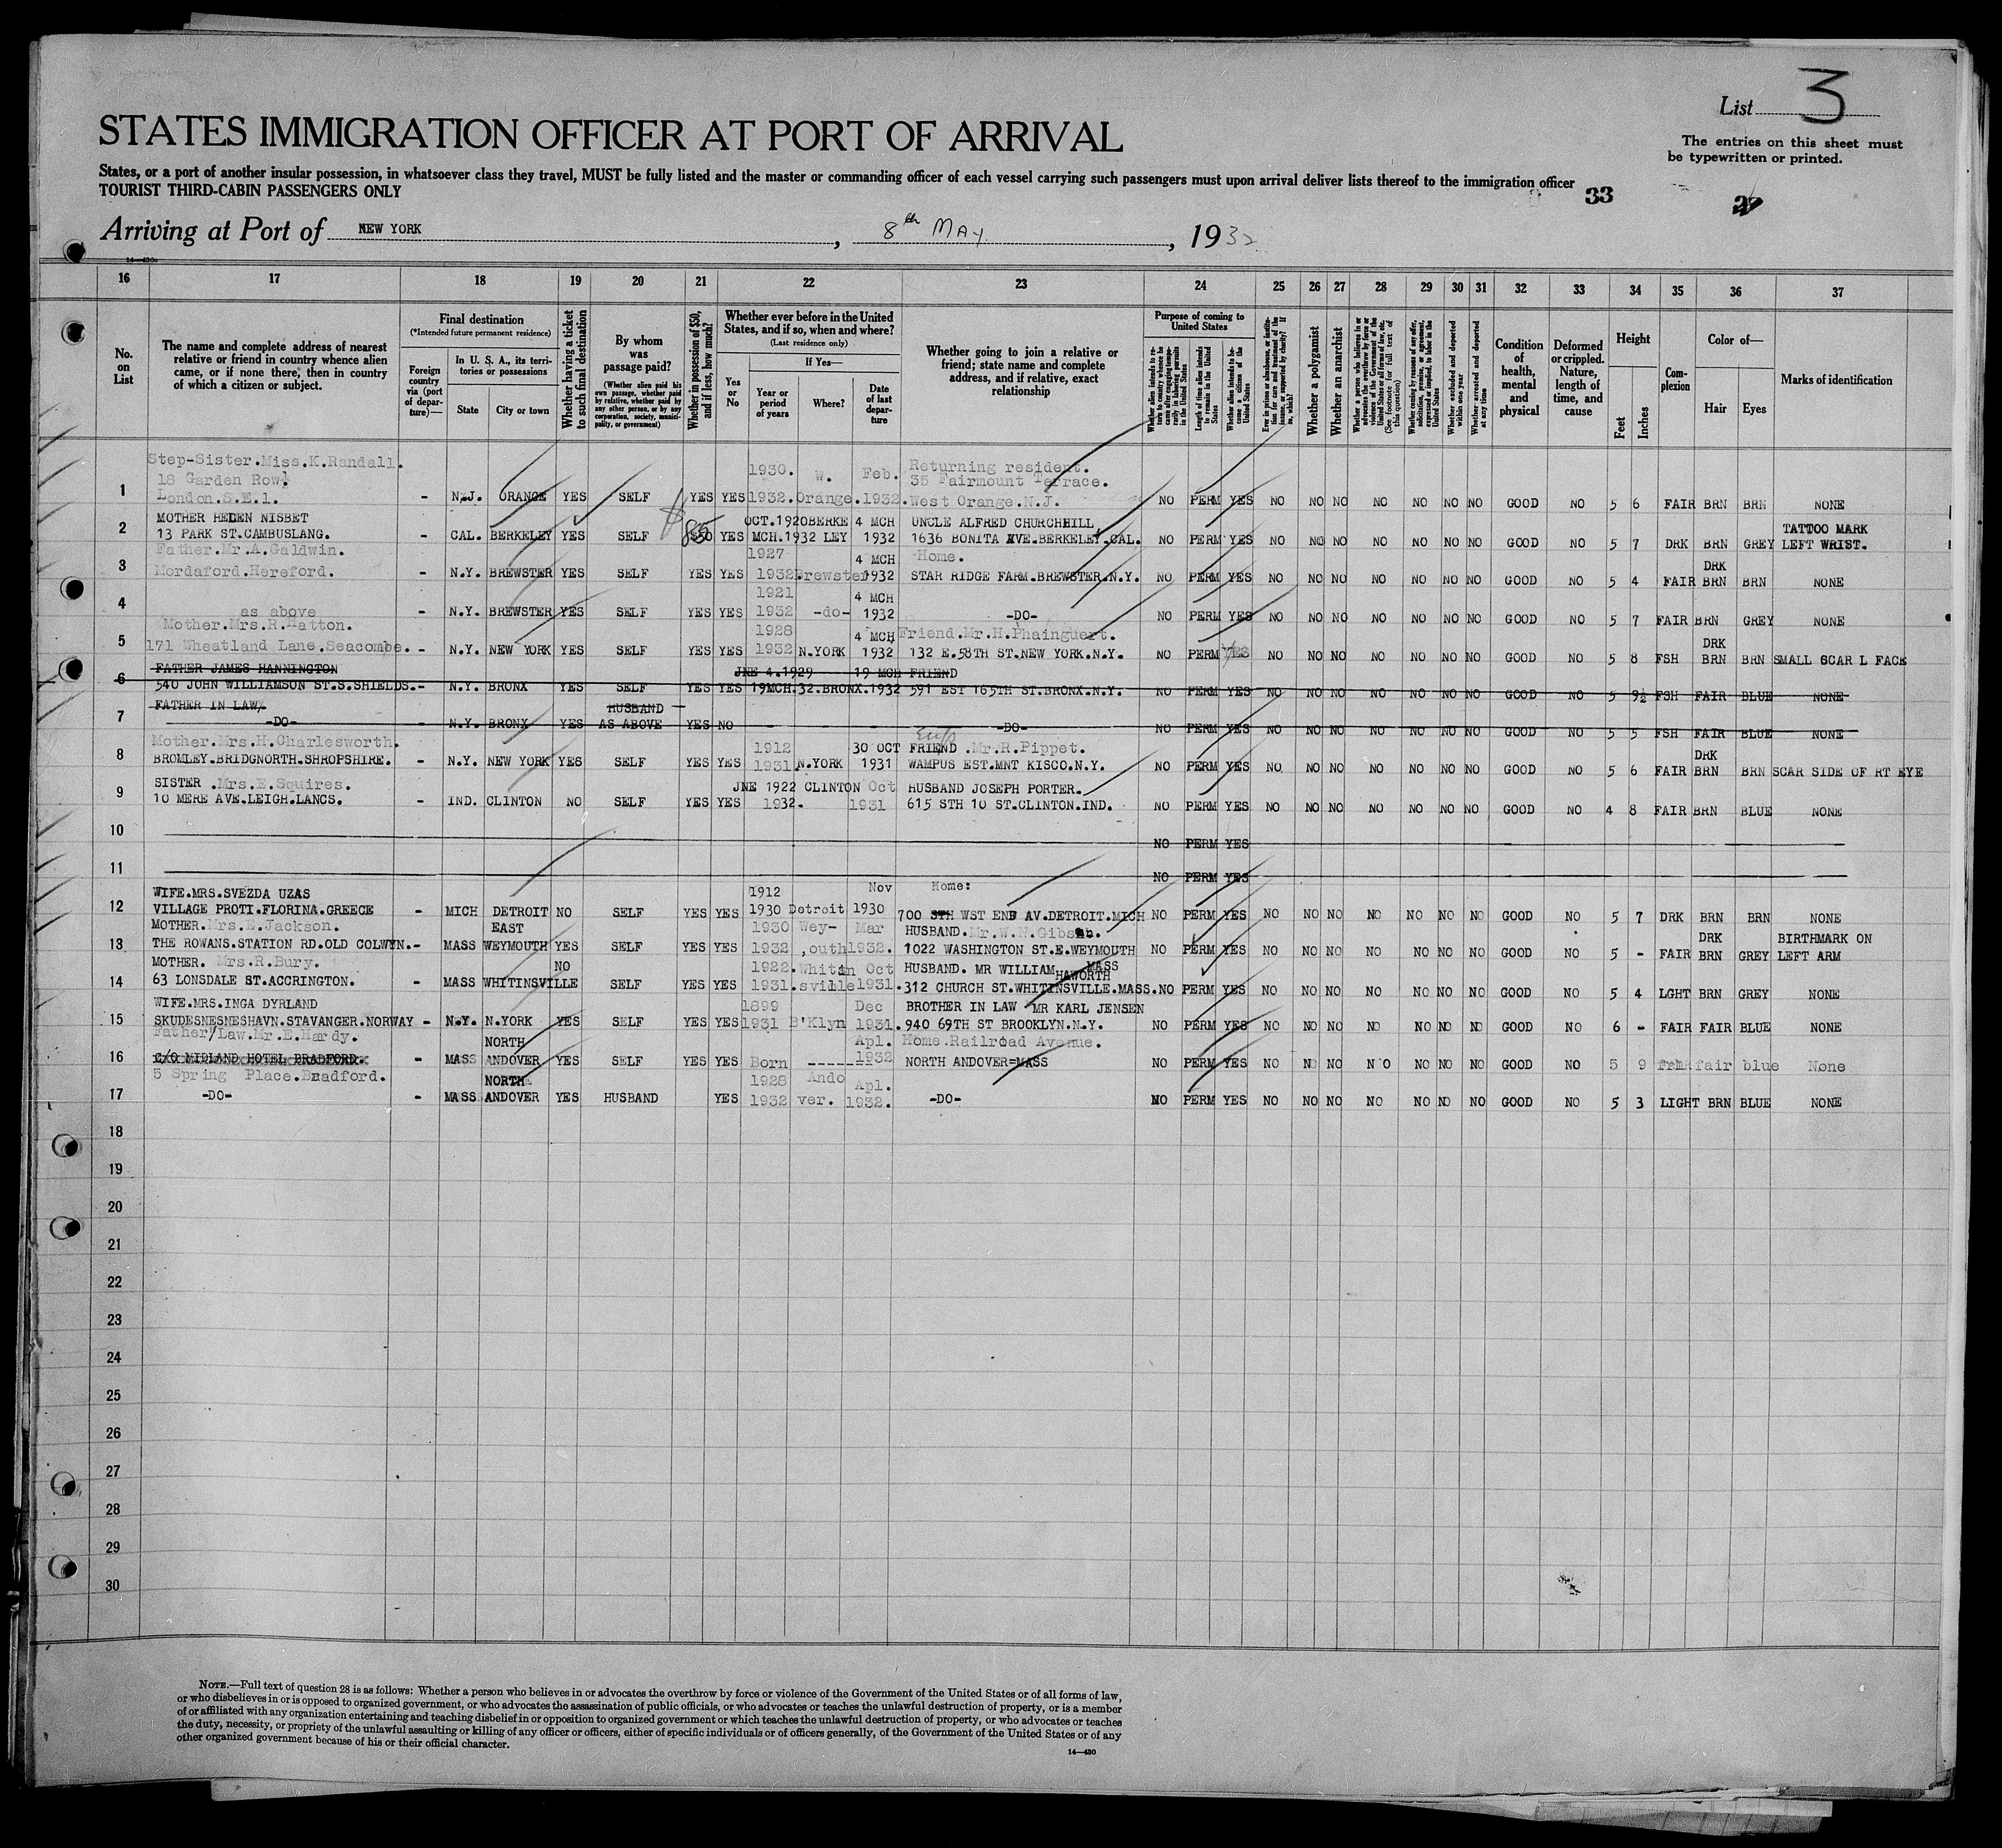 List 3
STATES IMMIGRATION OFFICER AT PORT OF ARRIVAL
The entries on this sheet must
be typewritten or printed.
States, or a port of another insular possession, in whatsoever class they travel, MUST be fully listed and the master or commanding officer of each vessel carrying such passengers must upon arrival deliver lists thereof to the immigration officer
TOURIST THIRD-CABIN PASSENGERS ONLY
33
Arriving at Port of NEW YORK, 8th MAY, 1932
14-430
16 17 18 19 20 21 22 23 24 25 26 27 28 29 30 31 32 33 34 35 36 37
No. on List
The name and complete address of nearest relative or friend in country whence alien came, or if none there, then in country of which a citizen or subject.
Final destination
(*Intended future permanent residence)
Foreign country via (port of departure)—
In U. S. A., its territories or possessions
State
City or town
Whether having a ticket to such final destination
By whom was passage paid?
(Whether alien paid his own passage, whether paid by relative, whether paid by any other person, or by any corporation, society, municipality, or government)
Whether in possession of $50, and if less, how much?
Whether ever before in the United States, and if so, when and where?
(Last residence only)
Yes or No
If Yes—
Year or period of years
Where?
Date of last departure
Whether going to join a relative or friend; state name and complete address, and if relative, exact relationship
Purpose of coming to United States
Whether alien intends to return to country whence he came after engaging temporarily in laboring pursuits in the United States
Length of time alien intends to remain in the United States
Whether alien intends to become a citizen of the United States
Ever in prison or almshouse, or institution for care and treatment of the insane, or supported by charity? If so, which?
Whether a polygamist
Whether an anarchist
Whether a person who believes in or advocates the overthrow by force or violence of the Government of the United States or all forms of law, etc. (See footnote for full text of this question)
Whether coming by reason of any offer, solicitation, promise, or agreement, expressed or implied, to labor in the United States
Whether excluded and deported within one year
Whether arrested and deported at any time
Condition of health, mental and physical
Deformed or crippled. Nature, length of time, and cause
Height
Feet
Inches
Complexion
Color of—
Hair
Eyes
Marks of identification
Step-Sister.Miss.K.Randall. 1930. W. Feb. Returning resident.
18 Garden Row. 35 Fairmount Terrace.
1 London.S.E.1. - N.J. ORANGE YES SELF YES YES 1932. Orange. 1932. West Orange.N.J. NO PERM YES NO NO NO NO NO NO NO GOOD NO 5 6 FAIR BRN BRN NONE
2 MOTHER HELEN NISBET OCT.1920 BERKE 4 MCH UNCLE ALFRED CHURCHHILL TATTOO MARK
13 PARK ST.CAMBUSLANG. - CAL. BERKELEY YES SELF $85 YES MCH.1932 LEY 1932 1636 BONITA AVE.BERKELEY.CAL. NO PERM YES NO NO NO NO NO NO NO GOOD NO 5 7 DRK BRN GREY LEFT WRIST.
Father.Mr.A.Galdwin. 1927 4 MCH Home. DRK
3 Mordaford.Hereford. - N.Y. BREWSTER YES SELF YES YES 1932 Brewster 1932 STAR RIDGE FARM.BREWSTER.N.Y. NO PERM YES NO NO NO NO NO NO NO GOOD NO 5 4 FAIR BRN BRN NONE
1921 4 MCH
4 as above - N.Y. BREWSTER YES SELF YES YES 1932 -do- 1932 -DO- NO PERM YES NO NO NO NO NO NO NO GOOD NO 5 7 FAIR BRN GREY NONE
Mother.Mrs.R.Hatton. 1928 4 MCH Friend.Mr.H.Phainguert. DRK
5 171 Wheatland Lane.Seacombe. - N.Y. NEW YORK YES SELF YES YES 1932 N.YORK 1932 132 E.58TH ST.NEW YORK.N.Y. NO PERM YES NO NO NO NO NO NO NO GOOD NO 5 8 FSH BRN BRN SMALL SCAR L FACE
FATHER JAMES HANNINGTON JNE 4.1929 19 MCH FRIEND
6 540 JOHN WILLIAMSON ST.S.SHIELDS. - N.Y. BRONX YES SELF YES YES 19MCH.32.BRONX.1932 591 EST 165TH ST.BRONX.N.Y. NO PERM YES NO NO NO NO NO NO NO GOOD NO 5 9½ FSH FAIR BLUE NONE
FATHER IN LAW HUSBAND
7 -DO- - N.Y. BRONX YES AS ABOVE YES NO - - - -DO- NO PERM YES NO NO NO NO NO NO NO GOOD NO 5 5 FSH FAIR BLUE NONE
Mother.Mrs.H.Charlesworth. 1912 30 OCT FRIEND .Mr.R.Pippet. DRK
8 BROMLEY.BRIDGNORTH.SHROPSHIRE. - N.Y. NEW YORK YES SELF YES YES 1931 N.YORK 1931 WAMPUS EST.MNT KISCO.N.Y. NO PERM YES NO NO NO NO NO NO NO GOOD NO 5 6 FAIR BRN BRN SCAR SIDE OF RT EYE
SISTER .Mrs.E.Squires. JNE 1922 CLINTON Oct HUSBAND JOSEPH PORTER.
9 10 MERE AVE.LEIGH.LANCS. - IND. CLINTON NO SELF YES YES 1932. 1931 615 STH 10 ST.CLINTON.IND. NO PERM YES NO NO NO NO NO NO NO GOOD NO 4 8 FAIR BRN BLUE NONE
10 NO PERM YES
11 NO PERM YES
WIFE.MRS.SVEZDA UZAS 1912 Nov Home:
12 VILLAGE PROTI.FLORINA.GREECE - MICH DETROIT NO SELF YES YES 1930 Detroit 1930 700 STH WST END AV.DETROIT.MICH NO PERM YES NO NO NO NO NO NO NO GOOD NO 5 7 DRK BRN BRN NONE
MOTHER.Mrs.E.Jackson. EAST 1930 Wey- Mar HUSBAND.Mr.W.N.Gibson. DRK BIRTHMARK ON
13 THE ROWANS.STATION RD.OLD COLWYN. - MASS WEYMOUTH YES SELF YES YES 1932 ,outh 1932. 1022 WASHINGTON ST.E.WEYMOUTH NO PERM YES NO NO NO NO NO NO NO GOOD NO 5 - FAIR BRN GREY LEFT ARM
MOTHER. Mrs.R.Bury. NO 1922. Whitin Oct HUSBAND. MR WILLIAM HAWORTH MASS
14 63 LONSDALE ST.ACCRINGTON. - MASS WHITINSVILLE SELF YES YES 1931. sville 1931. 312 CHURCH ST.WHITINSVILLE.MASS. NO PERM YES NO NO NO NO NO NO NO GOOD NO 5 4 LGHT BRN GREY NONE
WIFE.MRS.INGA DYRLAND 1899 Dec BROTHER IN LAW MR KARL JENSEN
15 SKUDESNESNESHAVN.STAVANGER.NORWAY - N.Y. N.YORK YES SELF YES YES 1931 B'Klyn 1931. 940 69TH ST BROOKLYN.N.Y. NO PERM YES NO NO NO NO NO NO NO GOOD NO 6 - FAIR FAIR BLUE NONE
Father/Law.Mr.E.Hardy. NORTH Apl. Home.Railroad Avenue.
16 C/O MIDLAND HOTEL BRADFORD. - MASS ANDOVER YES SELF YES YES Born ------- 1932 NORTH ANDOVER=MASS NO PERM YES NO NO NO NO NO NO NO GOOD NO 5 9 fair blue None
5 Spring Place.Bradford. NORTH 1928 Ando Apl.
17 -DO- - MASS ANDOVER YES HUSBAND YES 1932 ver. 1932. -DO- NO PERM YES NO NO NO NO NO NO NO GOOD NO 5 3 LIGHT BRN BLUE NONE
18
19
20
21
22
23
24
25
26
27
28
29
30
NOTE.—Full text of question 28 is as follows: Whether a person who believes in or advocates the overthrow by force or violence of the Government of the United States or of all forms of law,
or who disbelieves in or is opposed to organized government, or who advocates the assassination of public officials, or who advocates or teaches the unlawful destruction of property, or is a member
of or affiliated with any organization entertaining and teaching disbelief in or opposition to organized government or which teaches the unlawful destruction of property, or who advocates or teaches
the duty, necessity, or propriety of the unlawful assaulting or killing of any officer or officers, either of specific individuals or of officers generally, of the Government of the United States or of any
other organized government because of his or their official character.
14—430